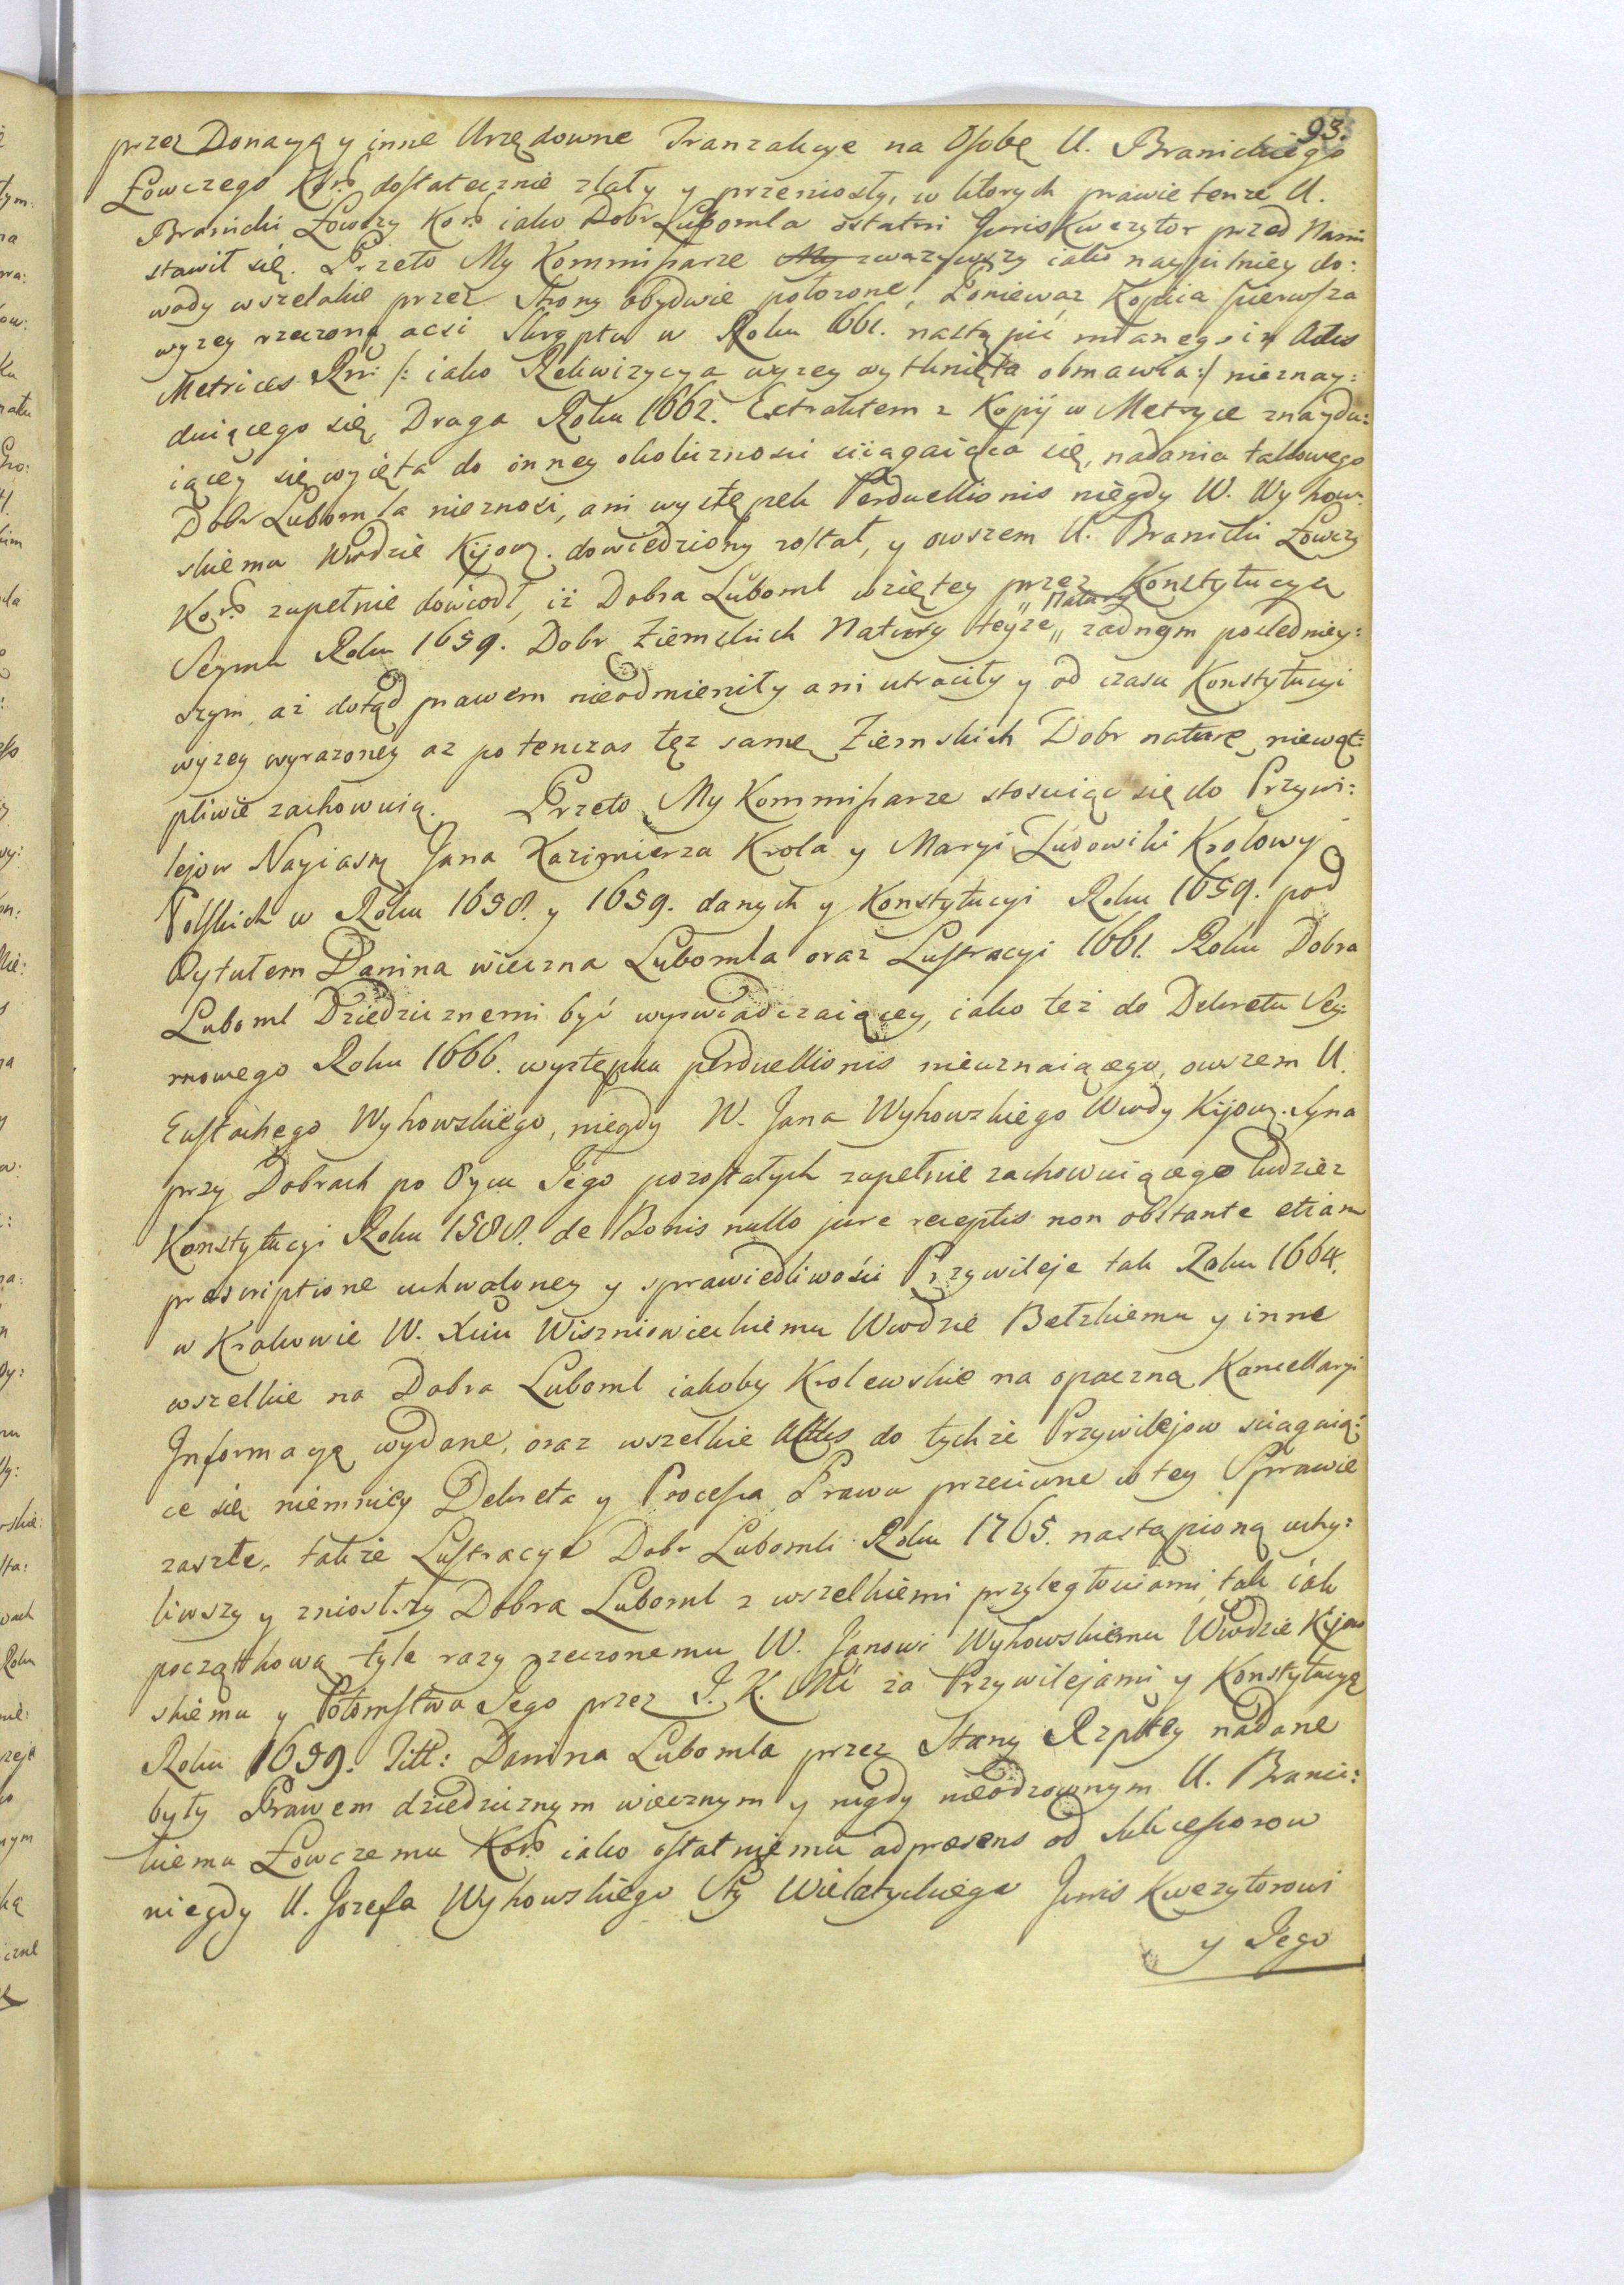 93.
przez Donacyą y inne Urzędowne Tranzakcye na Osobę U. Branickiego
Łowczego Kor: dostatecznie zlały y przeniosły, w ktorych prawie tenze U.
Branicki Łowczy Kor: iako Dobr Lubomla ostatni Juris Kwezytor przed Nami
stawił się. Przeto My Kommissarze My zwazywszy iako naypilniey do:
wody wszelakie przez Strony obydwie połozone, Poniewaz Kopiia pierwsza
wyzey rzeczona acsi Skryptu w Roku 1661. nastąpić mianego in Actis
Metrices Rni: /: iako Rekwizycya wyzey wytknięta obmawia :/ nieznay:
duiącego się, Druga Roku 1662. Extraktem z Kopij w Metryce znaydu:
iącey się wyięta do inney okolicznosci sciągaiąca się, nadania takowego
Dobr Lubomla nieznosi, ani występek Perduellionis niegdy W. Wyhow:
skiemu Wwdzie Kijow. dowiedziony został, y owszem U. Branicki Łowczy
Kor: zupełnie dowiodł, iż Dobra Luboml wziętey przez Konstytucyą
Seymu Roku 1659. Dobr Ziemskich Natury teyże „ Natury „ zadnym posledniey:
szym, aż dotąd prawem nieodmieniły ani utraciły y od czasu Konstytucyi
wyzey wyrazoney az potenczas tęz samę Ziemskich Dobr naturę niewąt:
pliwie zachowuią. Przeto My Kommissarze stosuiąc się do Przywi:
lejow Nayiasn. Jana Kazimierza Krola y Maryi Ludowiki Krolowy
Polskich w Roku 1658. y 1659. danych y Konstytucyi Roku 1659. pod
Tytułem Danina wieczna Lubomla oraz Lustracyi 1661. Roku Dobra
Luboml Dziedzicznemi być wyswiadczaiącey, iako też do Dekretu Sey:
mowego Roku 1666. występku perduellionis nieuznaiącego, owszem U.
Eustachego Wyhowskiego, niegdy W. Jana Wyhowskiego Wwdy Kijow. Syna
przy Dobrach po Oycu Jego pozostałych zupełnie zachowuiącego tudziez
Konstytucyi Roku 1588. de Bonis nullo jure receptis non obstante etiam
praescriptione uchwaloney y sprawiedliwości Przywileje tak Roku 1664.
w Krakowie W. Xciu Wiszniowieckiemu Wwdzie Bełzkiemu y inne
wszelkie na Dobra Luboml iakoby Krolewskie na opaczną Kancellaryi
Informacyą wydane, oraz wszelkie Actus do tychże Przywilejow sciągaią:
ce się niemniey Dekreta y Processa Prawu przeciwne w tey Sprawie
zaszłe, takze Lustracyą Dobr Lubomli Roku 1765. nastąpioną uchy:
liwszy y zniosłszy Dobra Luboml z wszelkiemi przyległosciami, tak iak
początkowa tyle razy rzeczonemu W. Janowi Wyhowskiemu Wwdzie Kijow
skiemu y Potomstwu Jego przez J. K. Mć za Przywilejami y Konstytucyą
Roku 1659. Titt: Danina Lubomla przez Stany Rzpltey nadane
były Prawem dziedzicznym wiecznym y nigdy nieodzownym U. Branic:
kiemu Łowczemu Kor: iako ostatniemu adpraesens od Sukcessorow
niegdy U. Jozefa Wyhowskiego Sty Wielatyckiego Juris Kwezytorowi
y Jego